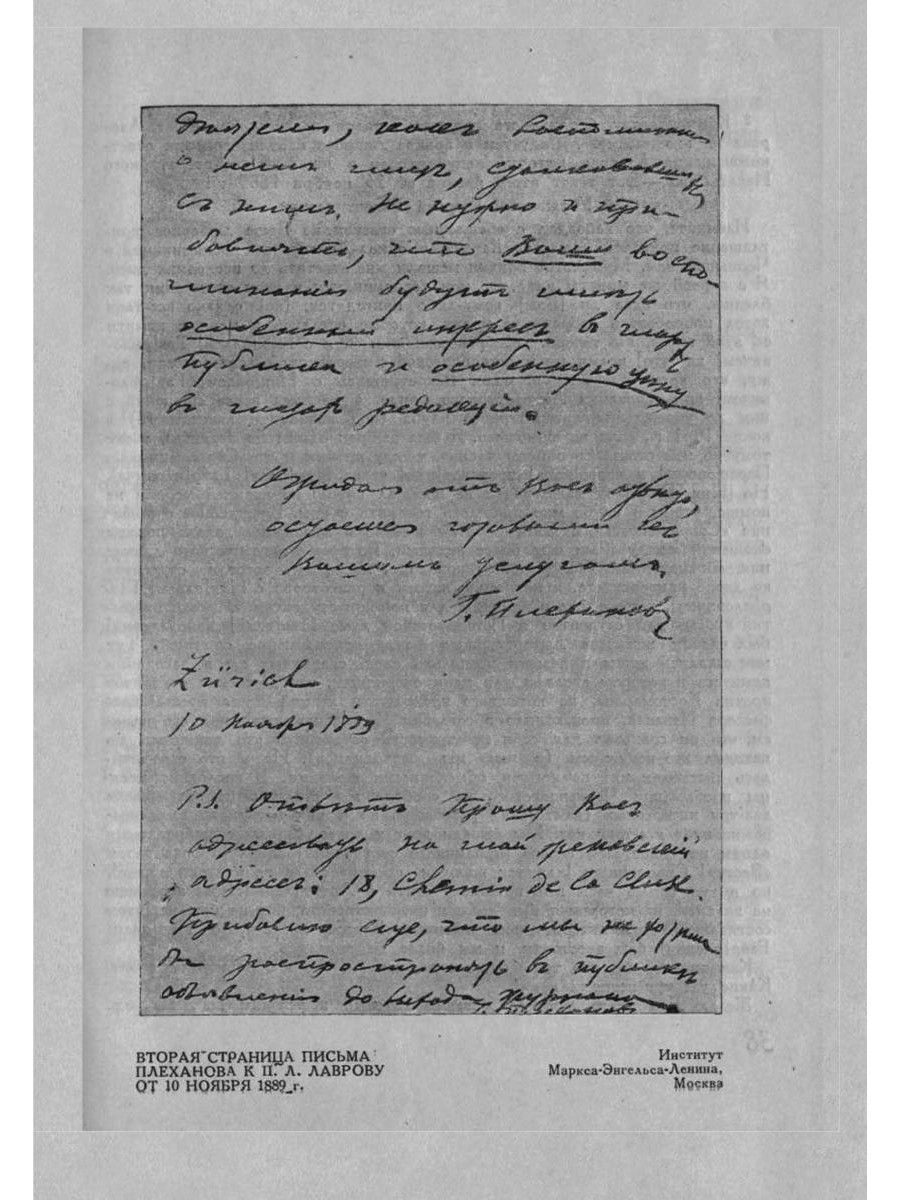 о немъ лицъ,
съ нимъ. Не нужно и при-
бавлять, что Ваши воспо-
минанія будутъ имѣть
особенный интересъ въ глазахъ
публики и особенную цѣну
въ глазахъ редакціи.
Ожидая отъ Васъ отвѣта,
остаемся готовыми къ
Вашимъ услугамъ.
Г. Плехановъ
Zürich
10 Ноября 1889
P.S. Отвѣтъ прошу Васъ
адресовать на мой женевскій
адресъ: 18, Chemin de la Cluse.
Прибавлю еще, что мы не хотѣли
бы распространять въ публикѣ
объявленія до выхода журнала
Г. Плехановъ
ВТОРАЯ СТРАНИЦА ПИСЬМА
ПЛЕХАНОВА К П. Л. ЛАВРОВУ
ОТ 10 НОЯБРЯ 1889 г.
Институт
Маркса-Энгельса-Ленина,
Москва